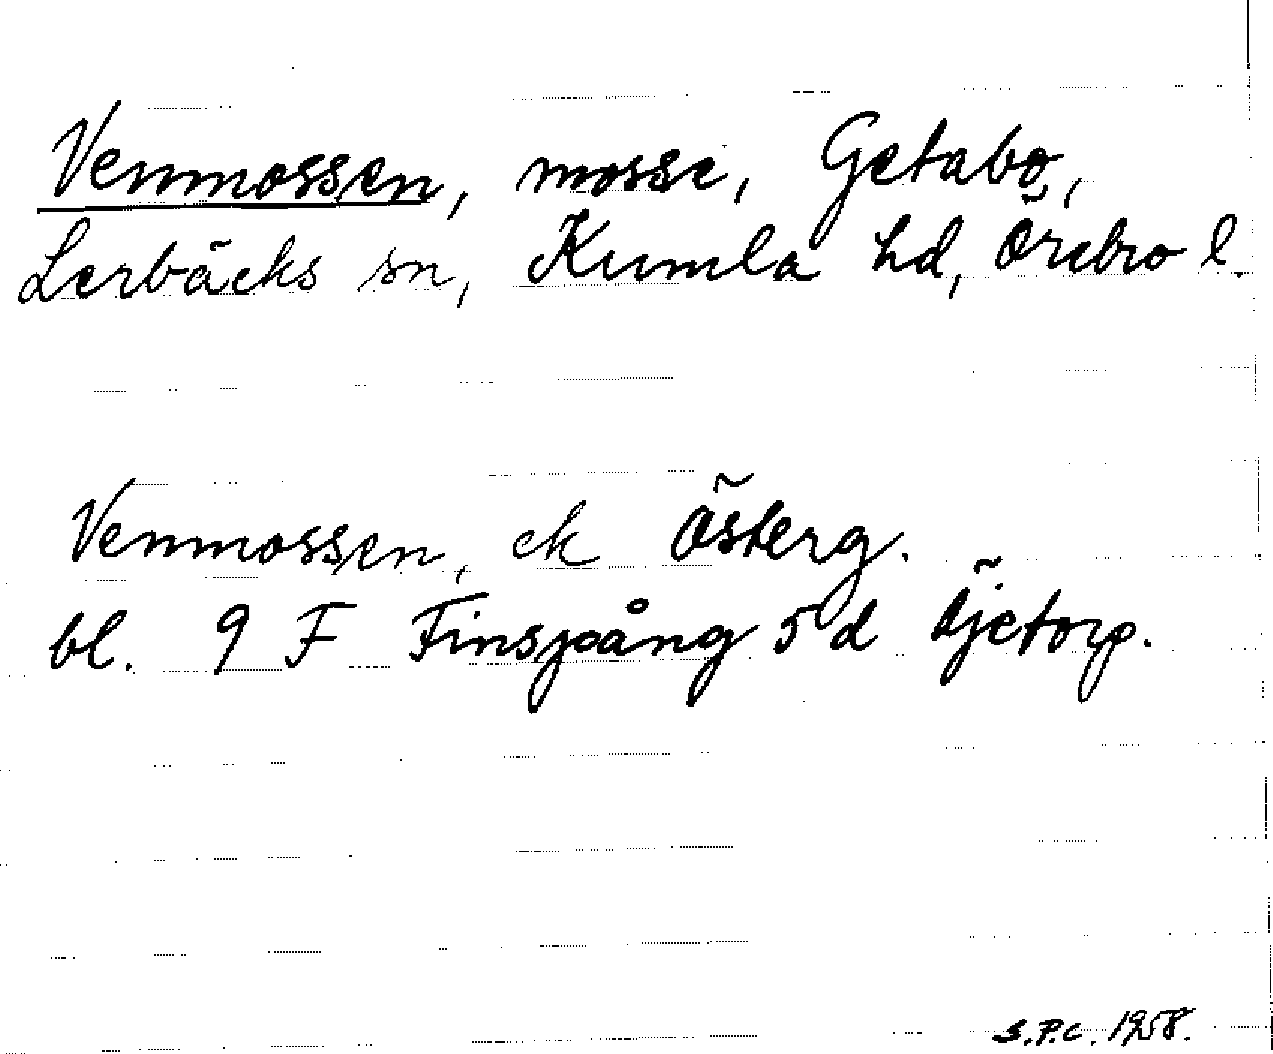 Venmossen, mosse, Getabo,
Lerbäcks sn, Kumla hd, Örebro l.
Venmossen, ek Österg.
bl. 9 F Finspång 5 d Öjetorp.
S.P.C. 1958.